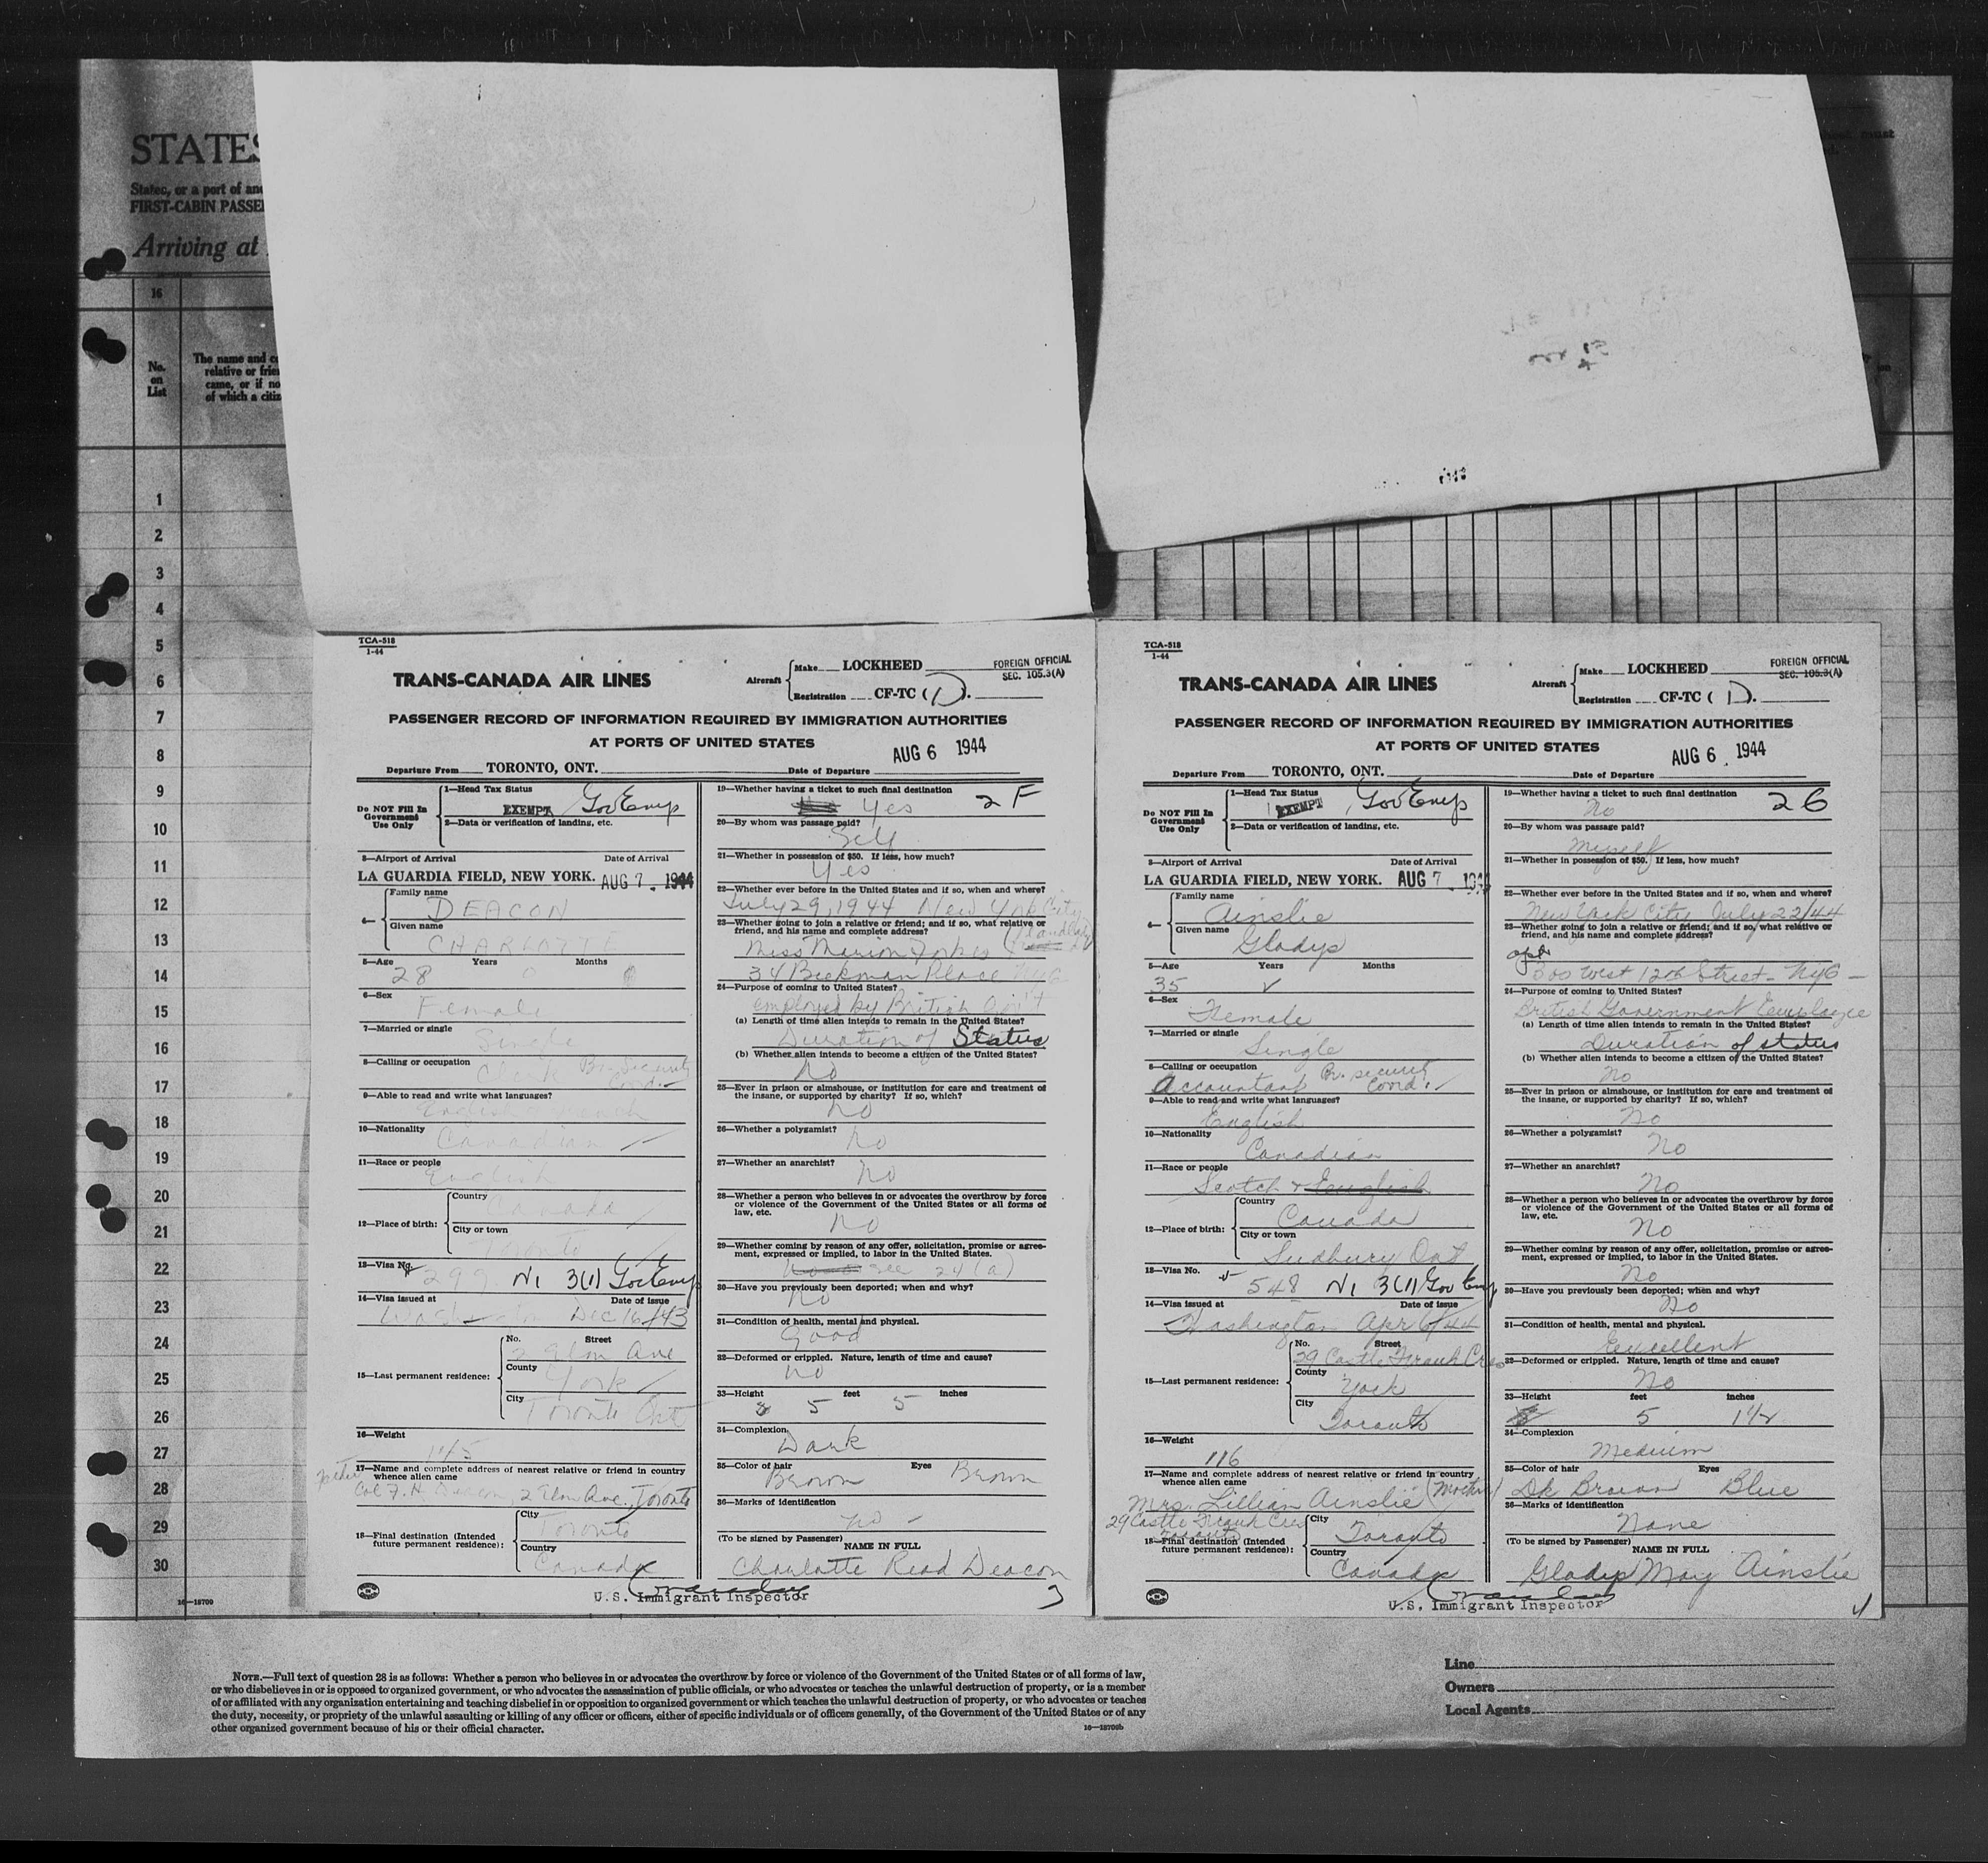 STATES
States, or a port of
FIRST-CABIN
Arriving at
16
No.
on
List
The name and
relative or
came, or if no
of which a
must
1
2
3
4
5
6
7
8
9
10
11
12
13
14
15
16
17
18
19
20
21
22
23
24
25
26
27
28
29
30
16—18709
TCA-518
1-44
TRANS-CANADA AIR LINES
Aircraft
Make LOCKHEED
Registration CF-TC ( D ).
FOREIGN OFFICIAL
SEC. 105.3(A)
PASSENGER RECORD OF INFORMATION REQUIRED BY IMMIGRATION AUTHORITIES
AT PORTS OF UNITED STATES
AUG 6 1944
Departure From TORONTO, ONT. Date of Departure
Do NOT Fill In
Government
Use Only
1—Head Tax Status
EXEMPT Gov Emp
2—Data or verification of landing, etc.
3—Airport of Arrival Date of Arrival
LA GUARDIA FIELD, NEW YORK. AUG 7 . 1944
4—
Family name
DEACON
Given name
CHARLOTTE
5—Age Years Months
28 0 0
6—Sex
Female
7—Married or single
Single
8—Calling or occupation
Clerk Br. Security
Coord.
9—Able to read and write what languages?
English
10—Nationality
Canadian
11—Race or people
English
12—Place of birth:
Country
Canada
City or town
Toronto
13—Visa No.
299 N1 3(1) Gov Emp
14—Visa issued at Date of issue
Washington Dec 16/43
15—Last permanent residence:
No. Street
2 Glen Ave
County
York
City
Toronto Ont
16—Weight
115
17—Name and complete address of nearest relative or friend in country
whence alien came
Father
Col F. H. Deacon, 2 Glen Ave. Toronto
18—Final destination (Intended
future permanent residence):
City
Toronto
Country
Canada
19—Whether having a ticket to such final destination
Yes 2F
20—By whom was passage paid?
Self
21—Whether in possession of $50. If less, how much?
Yes
22—Whether ever before in the United States and if so, when and where?
July 29, 1944 New York City
23—Whether going to join a relative or friend; and if so, what relative or
friend, and his name and complete address?
(Landlady
Miss Marion
34 Beekman Place NYC
24—Purpose of coming to United States?
employed by British Gov't
(a) Length of time alien intends to remain in the United States?
Duration of Status
(b) Whether alien intends to become a citizen of the United States?
No
25—Ever in prison or almshouse, or institution for care and treatment of
the insane, or supported by charity? If so, which?
No
26—Whether a polygamist?
No
27—Whether an anarchist?
No
28—Whether a person who believes in or advocates the overthrow by force
or violence of the Government of the United States or all forms of
law, etc.
No
29—Whether coming by reason of any offer, solicitation, promise or agree-
ment, expressed or implied, to labor in the United States.
see 24 (a)
30—Have you previously been deported; when and why?
No
31—Condition of health, mental and physical.
Good
32—Deformed or crippled. Nature, length of time and cause?
No
33—Height feet inches
5 5
34—Complexion
Dark
35—Color of hair Eyes
Brown Brown
36—Marks of identification
no -
(To be signed by Passenger) NAME IN FULL
Charlotte Read Deacon
U.S. Immigrant Inspector
3
TCA-518
1-44
TRANS-CANADA AIR LINES
Aircraft
Make LOCKHEED
Registration CF-TC ( D ).
FOREIGN OFFICIAL
SEC. 105.3(A)
PASSENGER RECORD OF INFORMATION REQUIRED BY IMMIGRATION AUTHORITIES
AT PORTS OF UNITED STATES
AUG 6 . 1944
Departure From TORONTO, ONT. Date of Departure
Do NOT Fill In
Government
Use Only
1—Head Tax Status
EXEMPT Gov Emp
2—Data or verification of landing, etc.
3—Airport of Arrival Date of Arrival
LA GUARDIA FIELD, NEW YORK. AUG 7 . 194
4—
Family name
Ainslie
Given name
Gladys
5—Age Years Months
35
6—Sex
Female
7—Married or single
Single
8—Calling or occupation
Accountant Br. security
Coord.
9—Able to read and write what languages?
English
10—Nationality
Canadian
11—Race or people
Scotch & English
12—Place of birth:
Country
Canada
City or town
Sudbury Ont
13—Visa No.
548 N1 3(1) Gov Emp
14—Visa issued at Date of issue
Washington Apr 6/44
15—Last permanent residence:
No. Street
29 Castle Frank Cres
County
York
City
Toronto
16—Weight
116
17—Name and complete address of nearest relative or friend in country
whence alien came
Mrs. Lillian Ainslie (Mother)
29 Castle Frank Cres
Toronto
18—Final destination (Intended
future permanent residence):
City
Toronto
Country
Canada
19—Whether having a ticket to such final destination
No 26
20—By whom was passage paid?
Myself
21—Whether in possession of $50. If less, how much?
22—Whether ever before in the United States and if so, when and where?
New York City July 22/44
23—Whether going to join a relative or friend; and if so, what relative or
friend, and his name and complete address?
apt
300 West 12th Street - NYC -
24—Purpose of coming to United States?
British Government Employee
(a) Length of time alien intends to remain in the United States?
Duration of status
(b) Whether alien intends to become a citizen of the United States?
No
25—Ever in prison or almshouse, or institution for care and treatment of
the insane, or supported by charity? If so, which?
No
26—Whether a polygamist?
No
27—Whether an anarchist?
No
28—Whether a person who believes in or advocates the overthrow by force
or violence of the Government of the United States or all forms of
law, etc.
No
29—Whether coming by reason of any offer, solicitation, promise or agree-
ment, expressed or implied, to labor in the United States.
No
30—Have you previously been deported; when and why?
No
31—Condition of health, mental and physical.
Excellent
32—Deformed or crippled. Nature, length of time and cause?
No
33—Height feet inches
5 1 1/2
34—Complexion
Medium
35—Color of hair Eyes
Dk Brown Blue
36—Marks of identification
None
(To be signed by Passenger) NAME IN FULL
Gladys May Ainslie
U.S. Immigrant Inspector
4
NOTE.—Full text of question 28 is as follows: Whether a person who believes in or advocates the overthrow by force or violence of the Government of the United States or of all forms of law,
or who disbelieves in or is opposed to organized government, or who advocates the assassination of public officials, or who advocates or teaches the unlawful destruction of property, or is a member
of or affiliated with any organization entertaining and teaching disbelief in or opposition to organized government or which teaches the unlawful destruction of property, or who advocates or teaches
the duty, necessity, or propriety of the unlawful assaulting or killing of any officer or officers, either of specific individuals or of officers generally, of the Government of the United States or of any
other organized government because of his or their official character.
16—18709b
Line
Owners
Local Agents